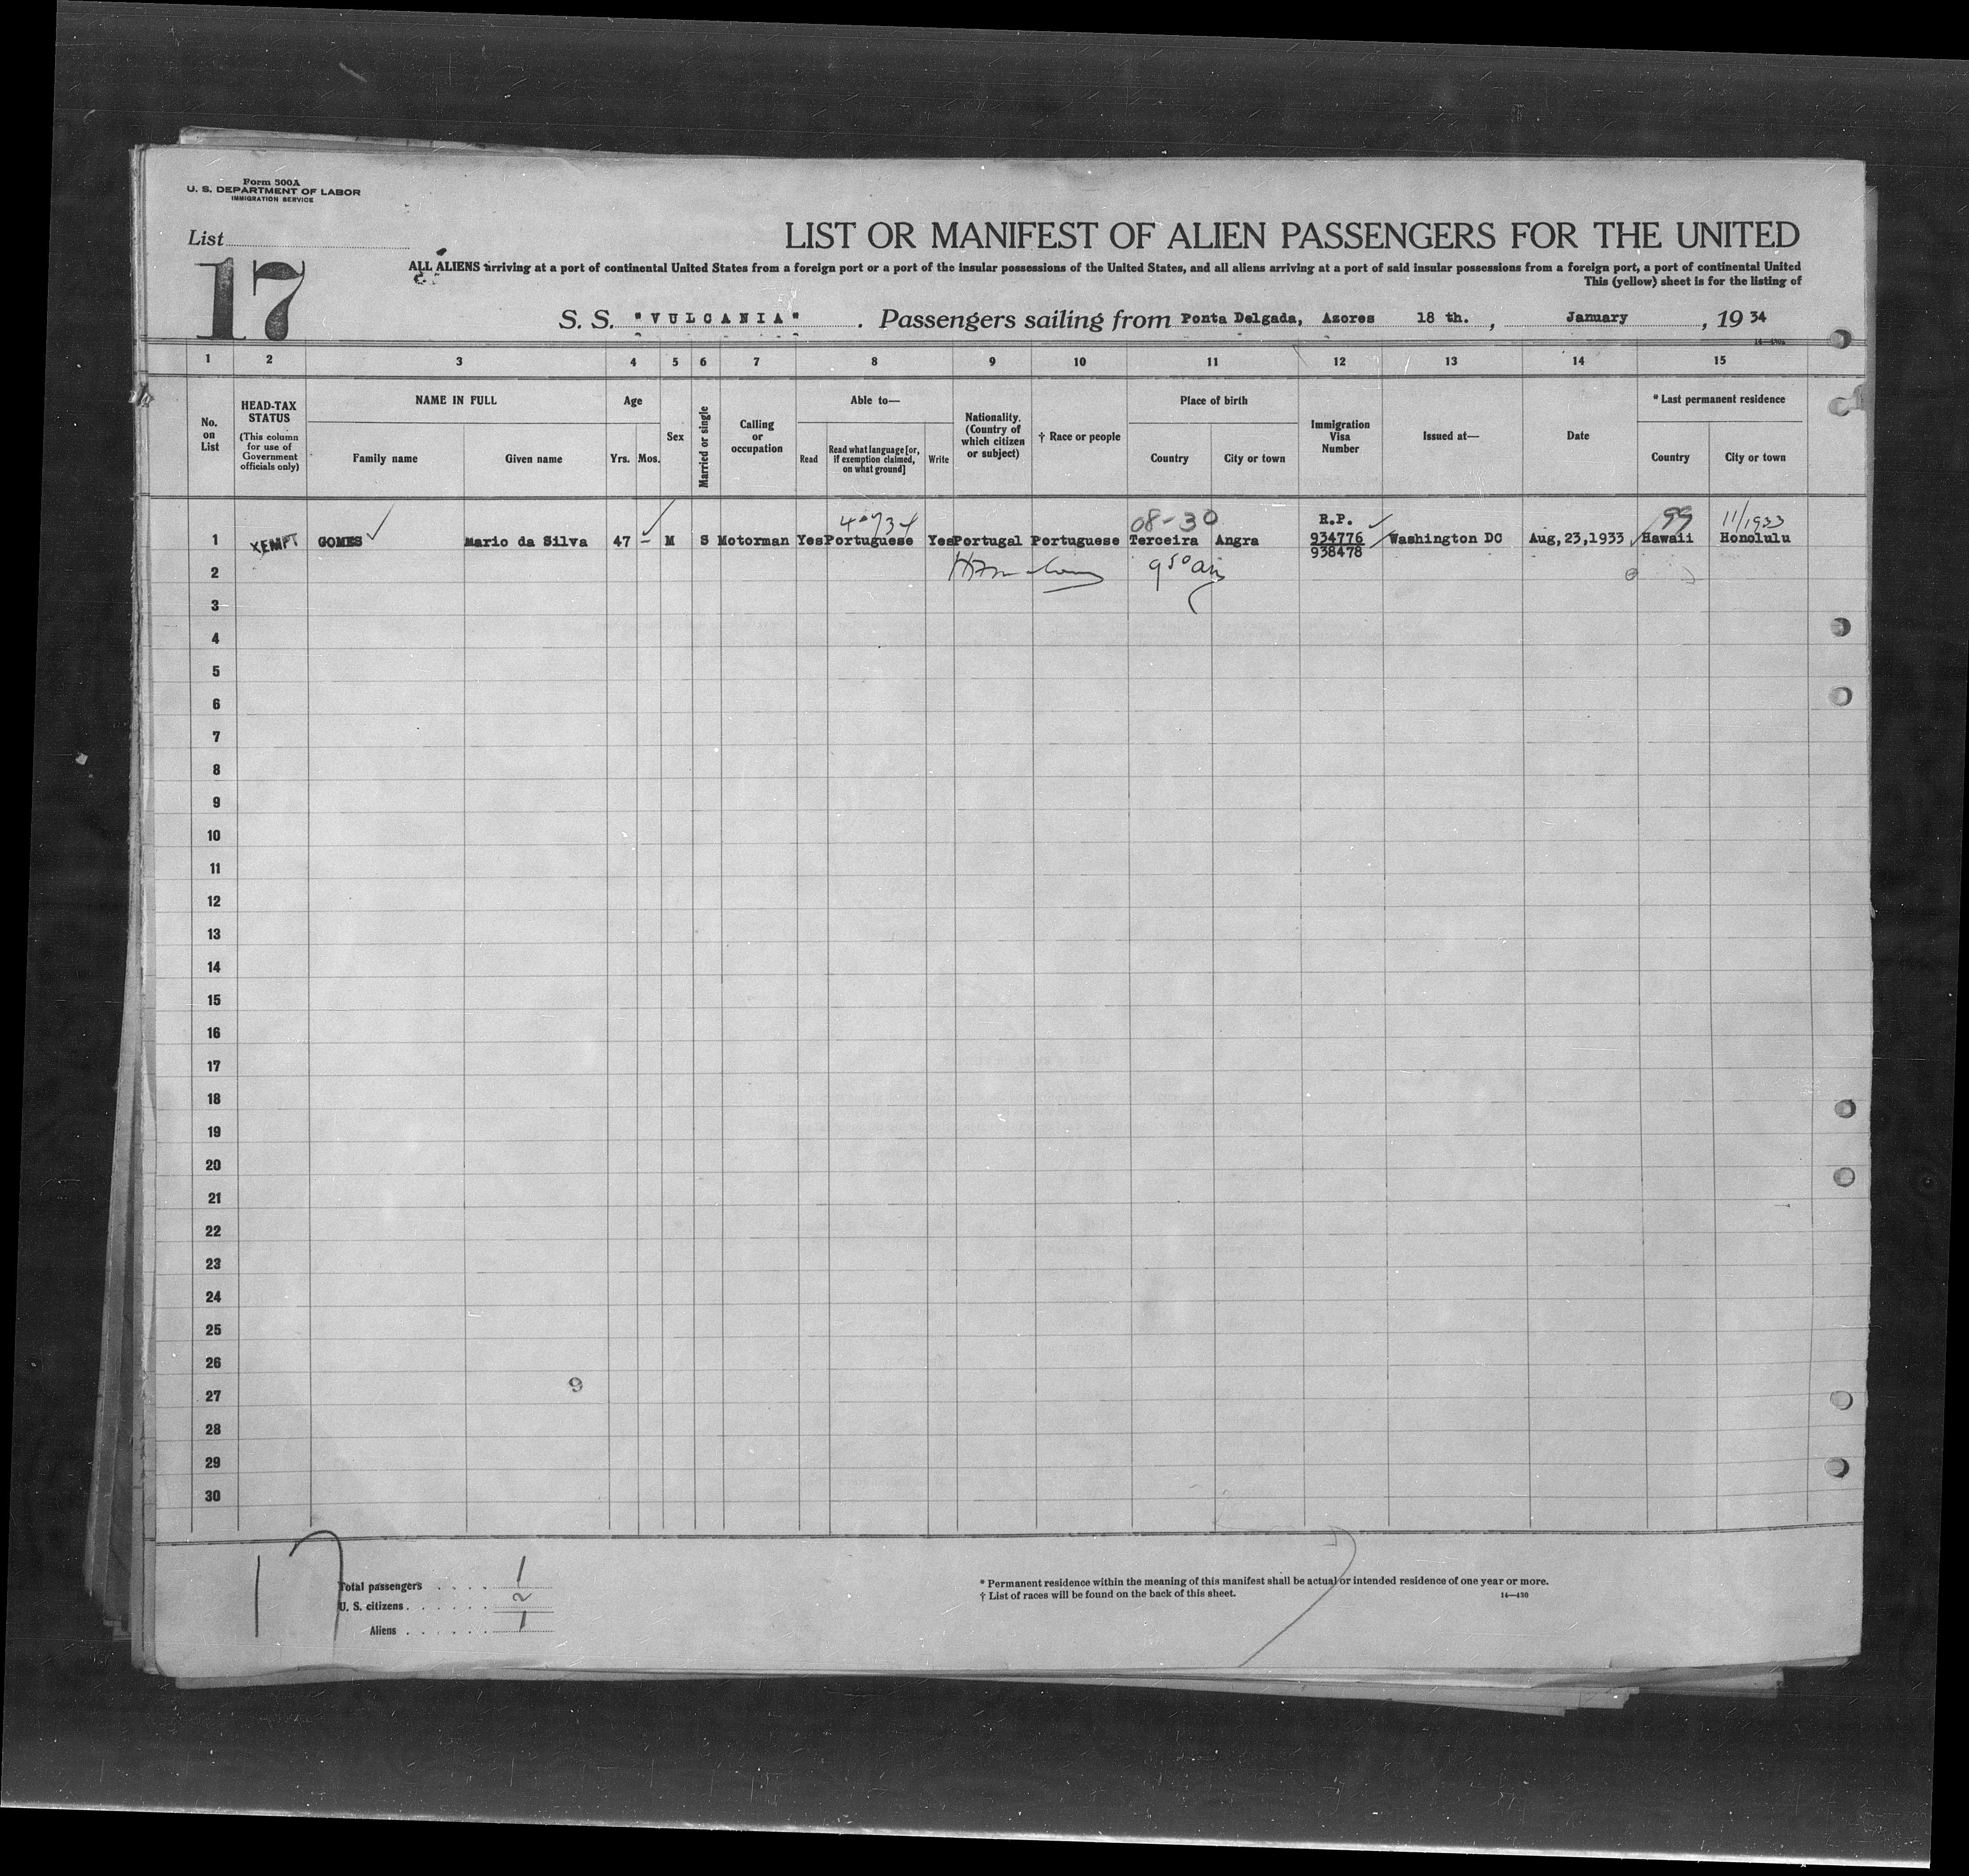 Form 500A
U. S. DEPARTMENT OF LABOR
IMMIGRATION SERVICE
List
17
LIST OR MANIFEST OF ALIEN PASSENGERS FOR THE UNITED
ALL ALIENS arriving at a port of continental United States from a foreign port or a port of the insular possessions of the United States, and all aliens arriving at a port of said insular possessions from a foreign port, a port of continental United
This (yellow) sheet is for the listing of
S. S. "VULCANIA". Passengers sailing from Ponta Delgada, Azores 18 th., January, 19 34
1 2 3 4 5 6 7 8 9 10 11 12 13 14 15
No. on List
HEAD-TAX STATUS
(This column for use of Government officials only)
NAME IN FULL
Family name
Given name
Age
Yrs.
Mos.
Sex
Married or single
Calling or occupation
Able to—
Read
Read what language [or, if exemption claimed, on what ground]
Write
Nationality. (Country of which citizen or subject)
† Race or people
Place of birth
Country
City or town
Immigration Visa Number
Issued at—
Date
* Last permanent residence
Country
City or town
08-30 R.P. 99 11/1933
1 XEMPT GOMES Mario da Silva 47 — M S Motorman Yes Portuguese Yes Portugal Portuguese Terceira Angra 934776 Washington DC Aug,23,1933 Hawaii Honolulu
938478
2
3
4
5
6
7
8
9
10
11
12
13
14
15
16
17
18
19
20
21
22
23
24
25
26
27
28
29
30
9
17
Total passengers 1
U. S. citizens
Aliens 1
* Permanent residence within the meaning of this manifest shall be actual or intended residence of one year or more.
† List of races will be found on the back of this sheet.
14—430